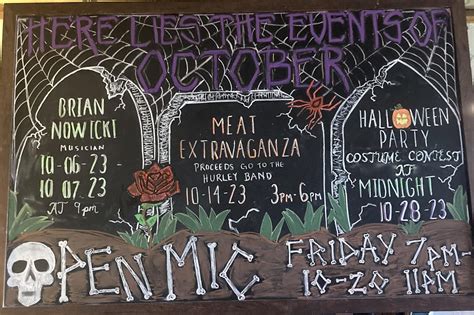 HERE LIES THE EVENTS OF
OCTOBER
BRIAN
NOWICKI
MUSICIAN
10-06-23
10 07.23
AT 9pm
MEAT
EXTRAVAGANZA
PROCEEDS GO TO THE
HURLEY BAND
10-14-23 3pm-6pm
HALLOWEEN
PARTY
COSTUME CONTEST
AT
MIDNIGHT
10-28-23
OPEN MIC FRIDAY 7PM-
10-20 11PM